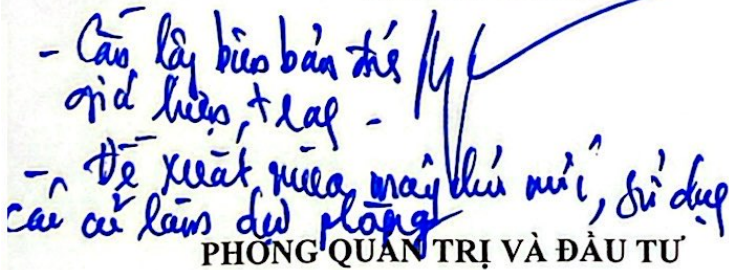 - Cần lấy biên bản đánh
giá hiện trạng -
- Đề xuất mua máy mới, sử dụng
cái cũ làm dự phòng
PHÒNG QUẢN TRỊ VÀ ĐẦU TƯ